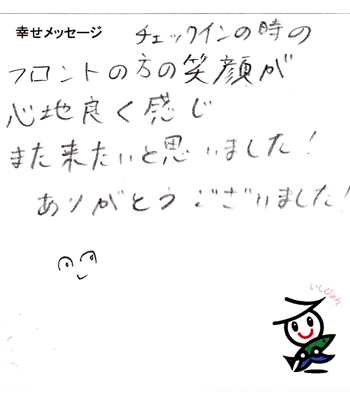 幸せメッセージ チェックインの時の
フロントの方の笑顔が
心地良く感じ
また来たいと思いました!
ありがとうございました!